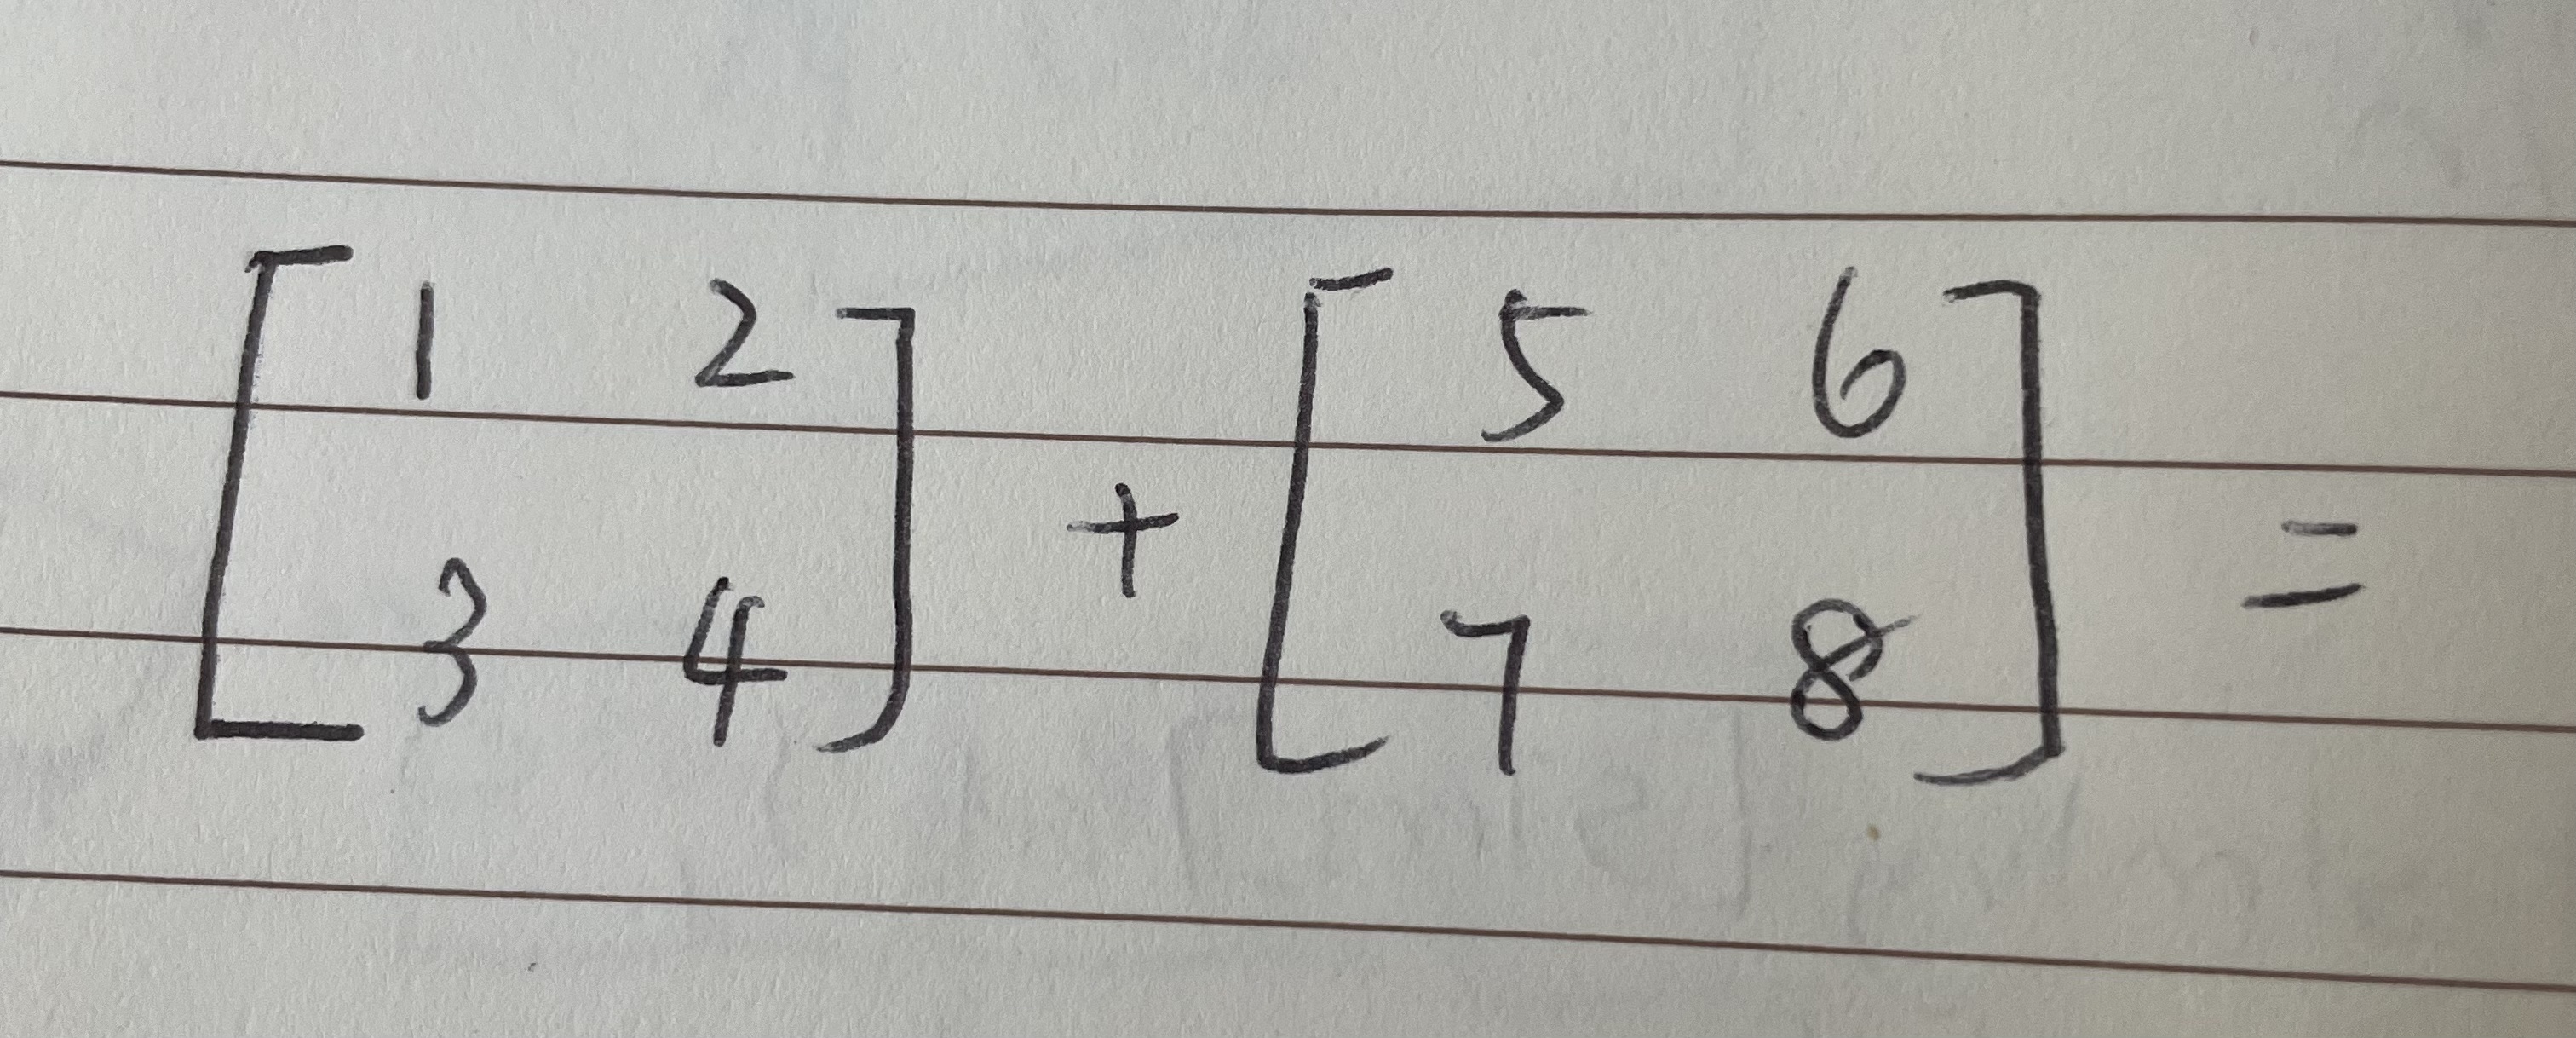 [1 2
3 4] + [5 6
7 8] =